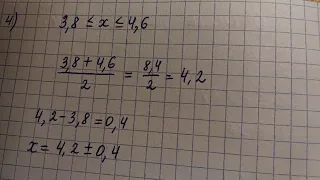 4) 3,8 ≤ x ≤ 4,6
(3,8 + 4,6)/2 = 8,4/2 = 4,2
4,2 - 3,8 = 0,4
x = 4,2 ± 0,4